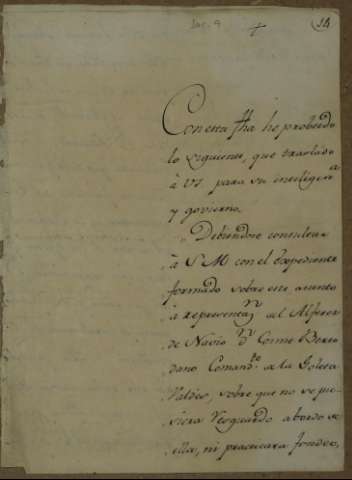 14
+
Con esta fha he probeido
lo siguiente, que traslado
à VS. para su inteligena
y govierno.
"Debiendose consultar
à S M con el Expediente
formado sobre este asunto
à representaon del Alferez
de Navio Dn Cosme
dano Comandte de la Goleta
Valdes, sobre que no se pu
siera Resguardo abordo de
ella, ni practicara fondeo,